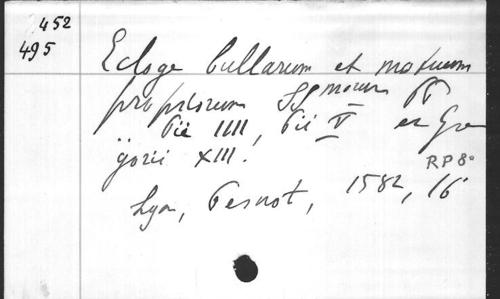 452
495
Ecloge bullarum et motuum
propriorum SS morum PP
Pii IIII, Pii V et Gre
gorii XIII.
RP 8°
Lyon, Pesnot, 1582, 16°